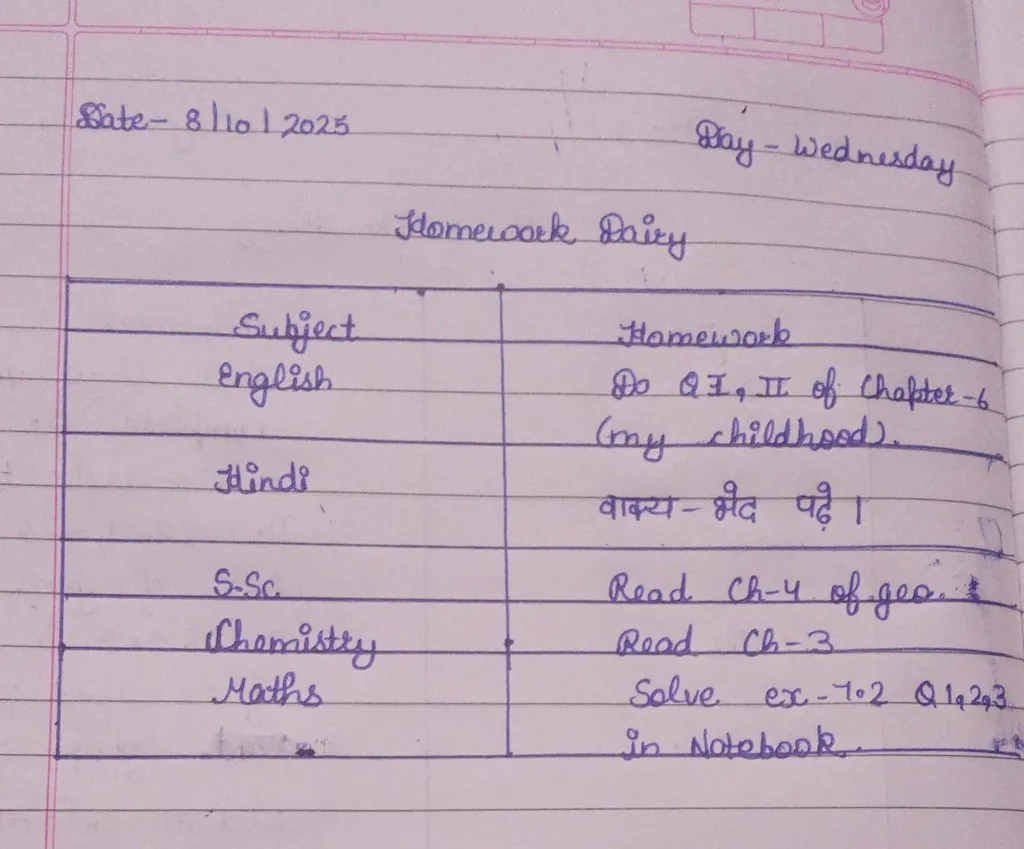 Date- 8/10/2025 Day - Wednesday
Homework Dairy
Subject Homework
English Do Q I, II of Chapter-6
(my childhood).
Hindi वाक्य - भेद पढ़े ।
S.Sc. Read Ch-4 of geo.
Chemistry Read Ch-3
Maths Solve ex-7.2 Q1,2,3
in Notebook.